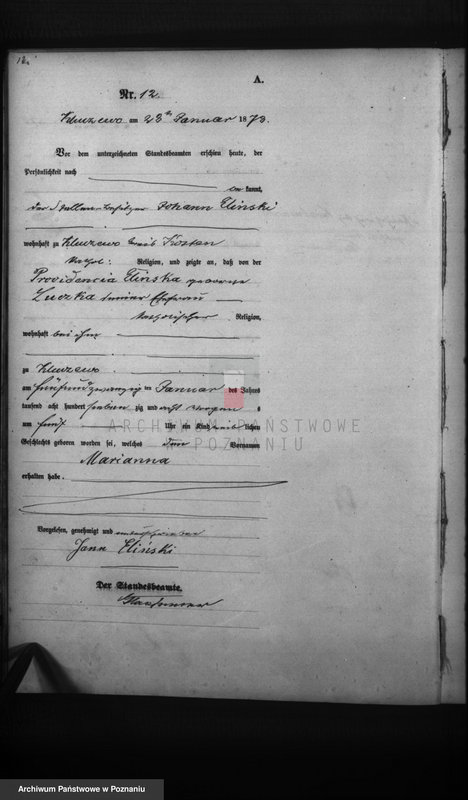 12.
A.
Nr. 12.
am 28ten Januar 187
Vor dem unterzeichneten Standesbeamten erschien heute, der
Persönlichkeit nach
kannt,
der Johann Elinski
wohnhaft zu Kluczewo Kreis Kosten
kathol: Religion, und zeigte an, daß von der
Providencia Elinska geborene
Luczka seiner Ehefrau
katholischer Religion,
wohnhaft bei ihm
zu Kluczewo
am fünfundzwanzigten Januar des Jahres
tausend acht hundert sieben zig und acht Morgens
um fünf Uhr ein Kind weiblichen
Geschlechts geboren worden sei, welches den Vornamen
Marianna
erhalten habe.
Vorgelesen, genehmigt und unterschrieben
Jann Eliński
Der Standesbeamte.
ARCHIWUM PAŃSTWOWE
W POZNANIU
Archiwum Państwowe w Poznaniu